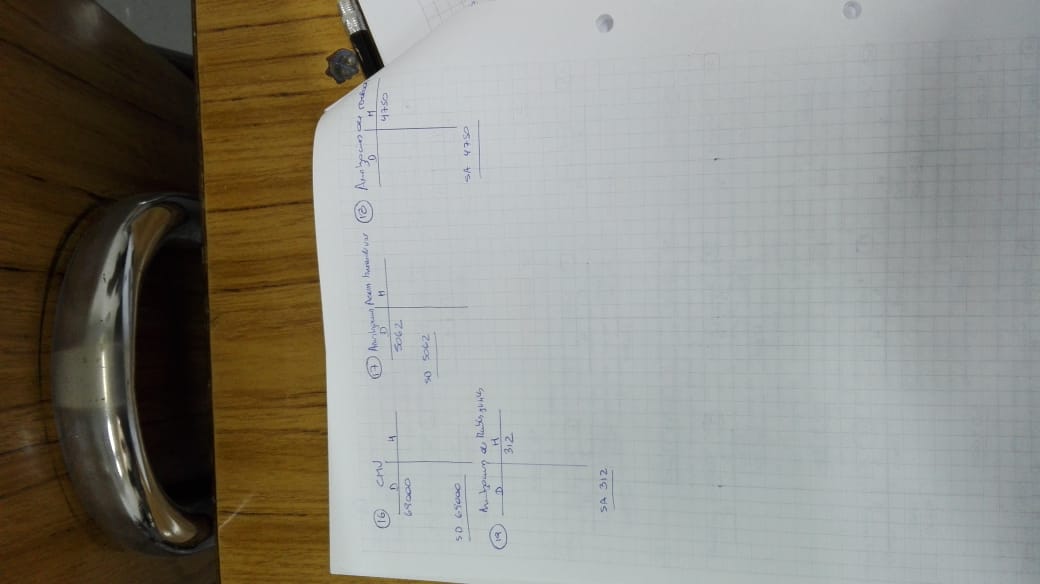 16 CMV
D H
69000
SD 69000
17
D H
5062
SD 5062
18 Amortizacion de
D H
4750
SA 4750
19 Amortizacion de
D H
312
SA 312